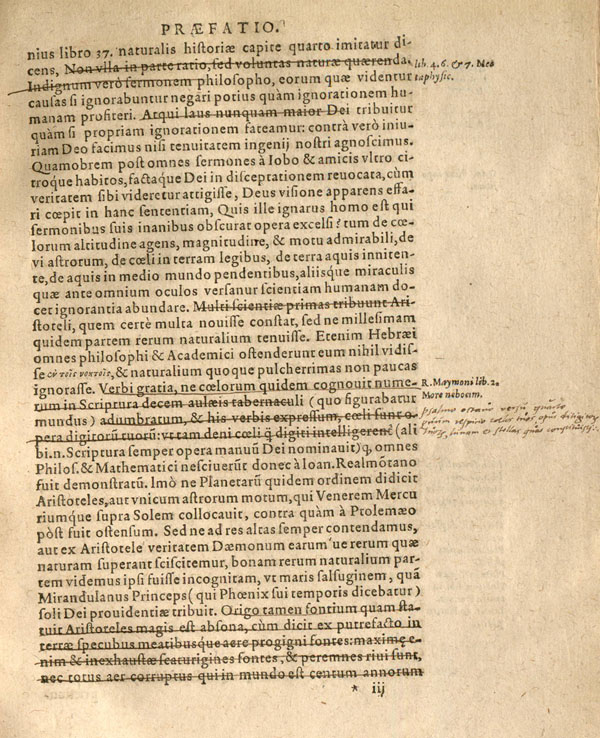 PRÆFATIO.
nius libro 37. naturalis historiæ capite quarto imitatur di-
cens, Non vlla in parte ratio, sed voluntas naturæ quærenda.
Indignum verò sermonem philosopho, eorum quæ videntur
causas si ignorabuntur negari potius quàm ignorationem hu-
manam profiteri. Atqui laus nunquam maior Dei tribuitur
quàm si propriam ignorationem fateamur: contrà verò iniu-
riam Deo facimus nisi tenuitatem ingenij nostri agnoscimus.
Quamobrem post omnes sermones à Iobo & amicis vltro ci-
troq́ue habitos, factaque Dei in disceptationem reuocata, cùm
veritatem sibi videretur attigisse, Deus visione apparens effa-
ri cœpit in hanc sententiam, Quis ille ignarus homo est qui
sermonibus suis inanibus obscurat opera excelsi? tum de cœ-
lorum altitudine agens, magnitudine, & motu admirabili, de
vi astrorum, de cœli in terram legibus, de terra aquis inniten-
te, de aquis in medio mundo pendentibus, aliisque miraculis
quæ ante omnium oculos versanur scientiam humanam do-
cet ignorantia abundare. Multi scientiæ primas tribuunt Ari-
stoteli, quem certè multa nouisse constat, sed ne millesimam
quidem partem rerum naturalium tenuisse. Etenim Hebræi
omnes philosophi & Academici ostenderunt eum nihil vidis-
se ἐν τοῖς νοητοῖς, & naturalium quoque pulcherrimas non paucas
ignorasse. Verbi gratia, ne cœlorum quidem cognouit nume-
rum in Scriptura decem aulæis tabernaculi (quo figurabatur
mundus) adumbratum, & his verbis expressum, cœli sunt o-
pera digitorũ tuorũ: vt tam deni cœli q̃ digiti intelligerentˀ (ali
bi.n. Scriptura semper opera manuũ Dei nominauit) q, omnes
Philos. & Mathematici nesciuerũt donec à Ioan. Realmõtano
fuit demonstratũ. Imò ne Planetarũ quidem ordinem didicit
Aristoteles, aut vnicum astrorum motum, qui Venerem Mercu
riumque supra Solem collocauit, contra quàm à Ptolemæo
pòst fuit ostensum. Sed ne ad res altas semper contendamus,
aut ex Aristotele veritatem Dæmonum earum´ue rerum quæ
naturam superant sciscitemur, bonam rerum naturalium par-
tem videmus ipsi fuisse incognitam, vt maris salsuginem, quã
Mirandulanus Princeps (qui Phœnix sui temporis dicebatur)
soli Dei prouidentiæ tribuit. Origo tamen fontium quam sta-
tuit Aristoteles magis est absona, cùm dicit ex putrefacto in
terræ specubus meatibusque aere progigni fontes: maximę e-
nim & inexhaustæ scaturigines fontes, & peremnes riui sunt,
nec totus aer corruptus qui in mundo est centum annorum
* iij
lib. 4. 6. & 7. Me-
taphysic.
R. Maymoni lib. 2.
More nebocim.
Psalmo octavo versu quarto